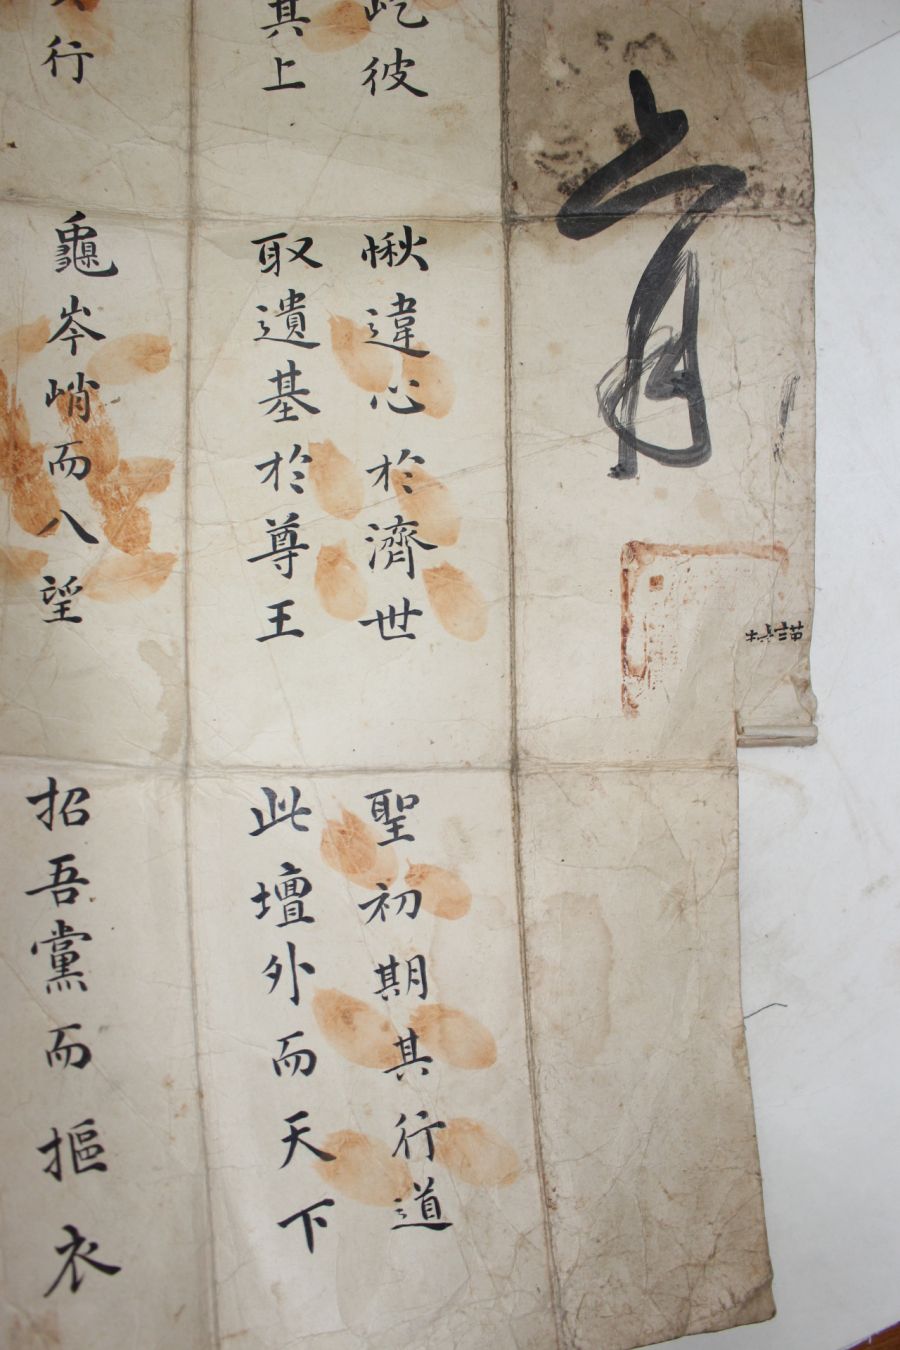 屹彼 愀違心於濟世 聖初期其行道
其上 取遺基於尊王 此壇外而天下
行 龜岑峭而八望 招吾黨而摳衣